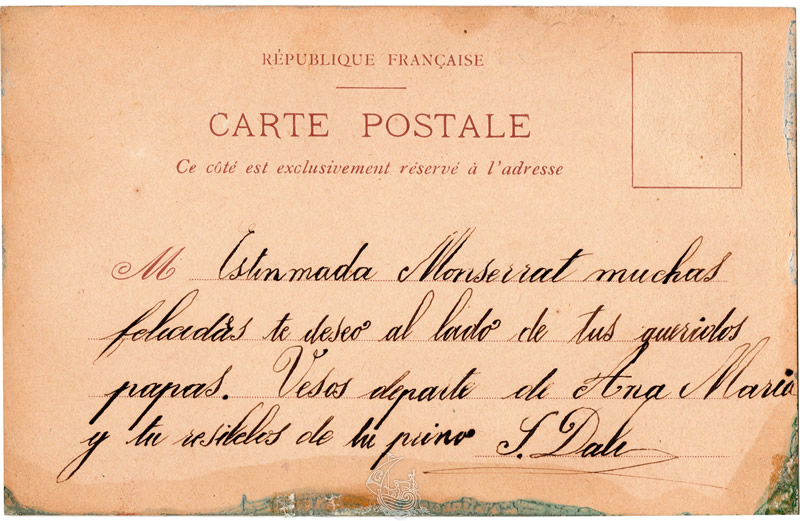 RÉPUBLIQUE FRANÇAISE
CARTE POSTALE
Ce côté est exclusivement réservé à l'adresse
M Estinmada Monserrat muchas
feliciadás te deseo al lado de tus queridos
papas. Vesos departe de Ana Maria
y tu resibelos de tu primo S. Dali